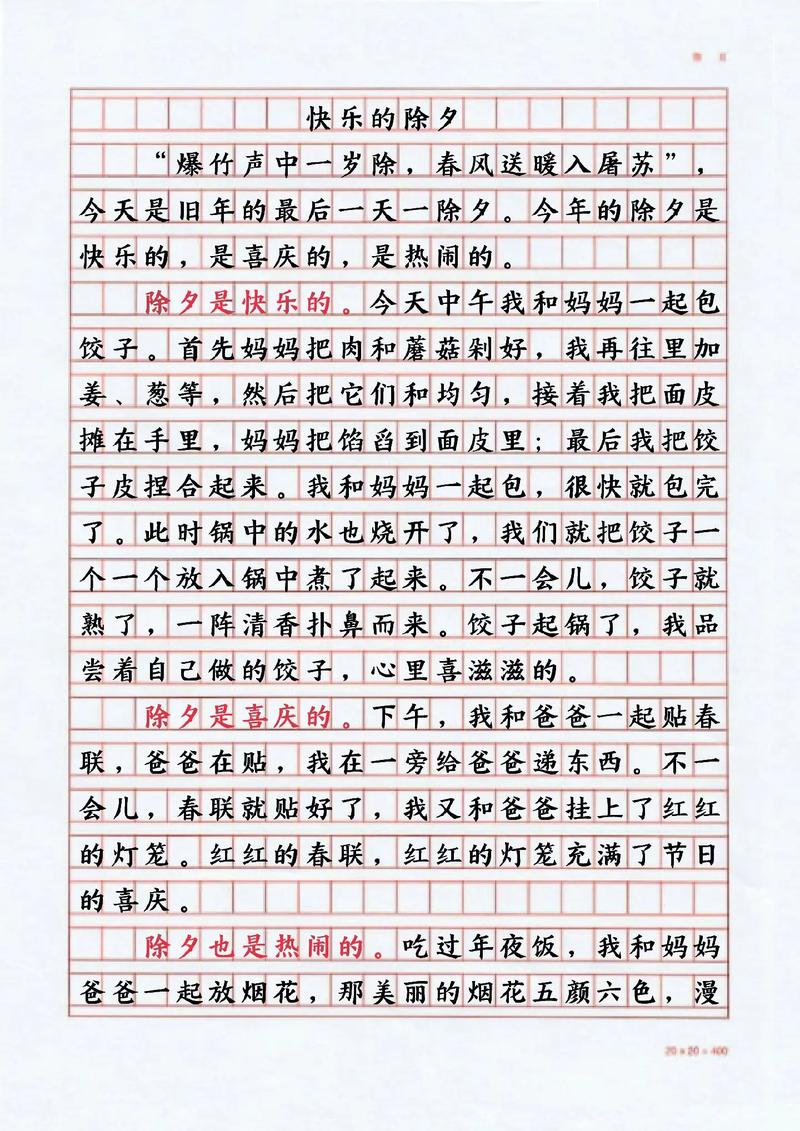 快乐的除夕
“爆竹声中一岁除，春风送暖入屠苏”，
今天是旧年的最后一天一除夕。今年的除夕是
快乐的，是喜庆的，是热闹的。
除夕是快乐的。今天中午我和妈妈一起包
饺子。首先妈妈把肉和蘑菇剁好，我再往里加
姜、葱等，然后把它们和均匀，接着我把面皮
摊在手里，妈妈把馅舀到面皮里；最后我把饺
子皮捏合起来。我和妈妈一起包，很快就包完
了。此时锅中的水也烧开了，我们就把饺子一
个一个放入锅中煮了起来。不一会儿，饺子就
熟了，一阵清香扑鼻而来。饺子起锅了，我品
尝着自己做的饺子，心里喜滋滋的。
除夕是喜庆的。下午，我和爸爸一起贴春
联，爸爸在贴，我在一旁给爸爸递东西。不一
会儿，春联就贴好了，我又和爸爸挂上了红红
的灯笼。红红的春联，红红的灯笼充满了节日
的喜庆。
除夕也是热闹的。吃过年夜饭，我和妈妈
爸爸一起放烟花，那美丽的烟花五颜六色，漫
20×20=400